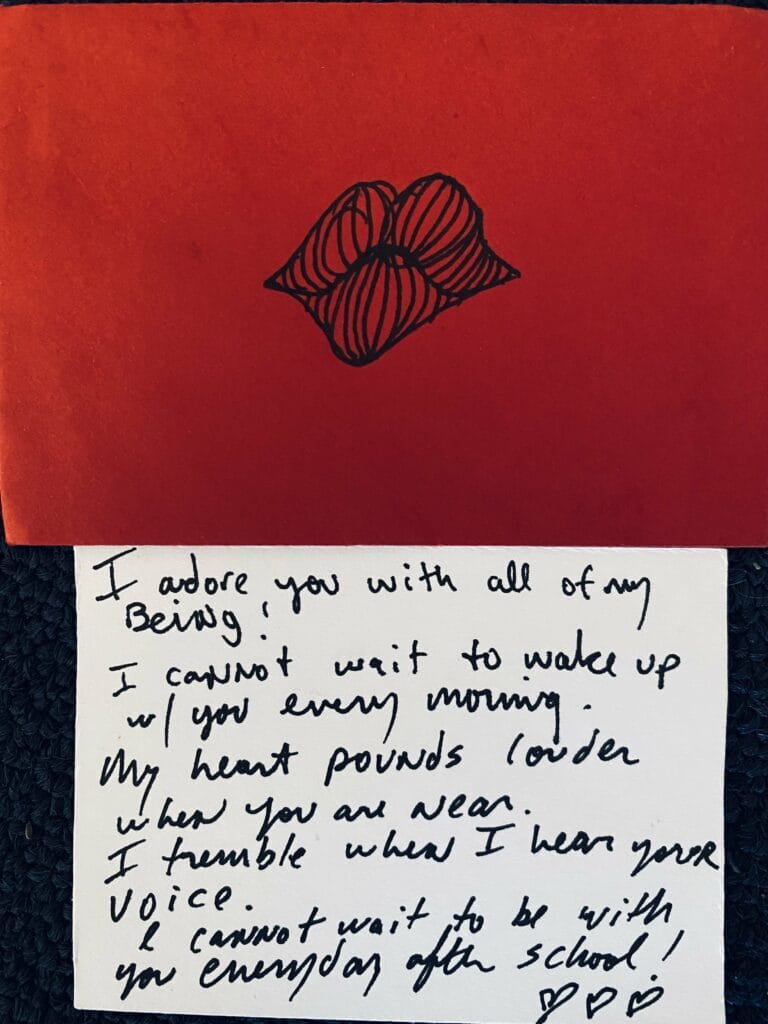 I adore you with all of my
Being!
I cannot wait to wake up
w/ you every morning.
My heart pounds louder
when you are near.
I tremble when I hear your
voice.
I cannot wait to be with
you everyday after school!